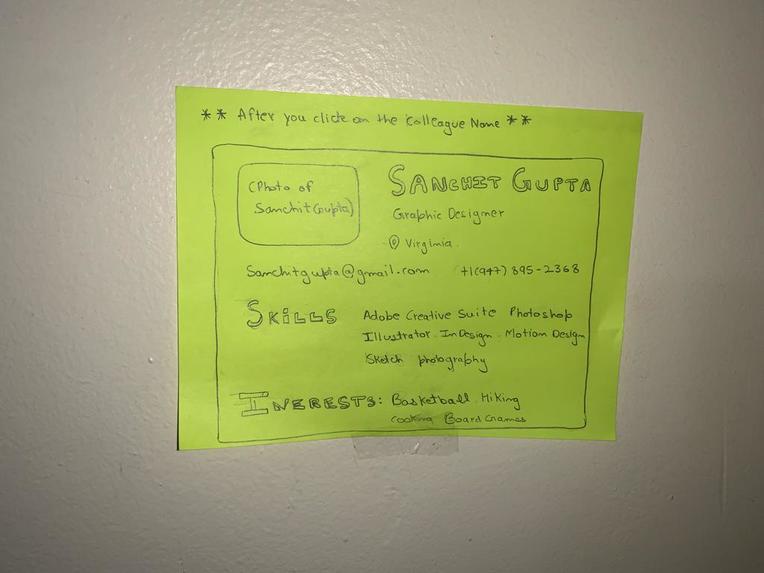 ** After you click on the Colleague Name **
(Photo of
Sanchit Gupta)
SANCHIT GUPTA
Graphic Designer
Virginia
Sanchitgupta@gmail.com +1(947) 895-2368
SKILLS Adobe Creative Suite Photoshop
Illustrator InDesign Motion Design
Sketch photography
INERESTS: Basketball Hiking
Cooking Board Games